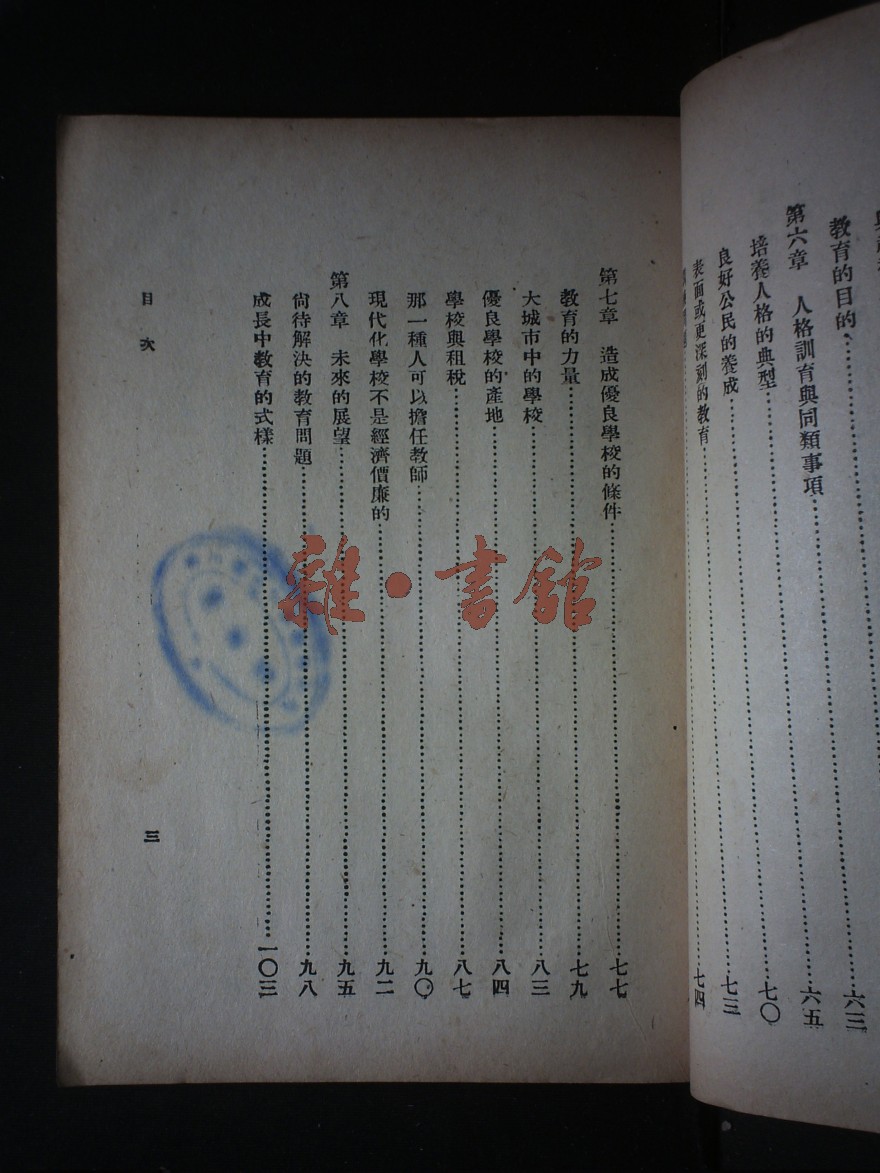 教育的目的……六三
第六章　人格訓育與同類事項……六五
培養人格的典型……七〇
良好公民的養成……七三
表面或更深刻的教育……七四
第七章　造成優良學校的條件……七七
教育的力量……七九
大城市中的學校……八三
優良學校的產地……八四
學校與租稅……八七
那一種人可以擔任教師……九〇
現代化學校不是經濟價廉的……九二
第八章　未來的展望……九五
尙待解決的教育問題……九八
成長中教育的式樣……一〇三
目次
三
雜·書館